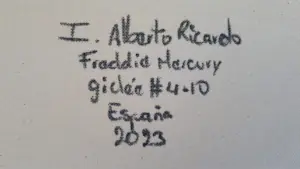 I. Alberto Ricardo
Freddie Mercury
giclée #4-10
España
2023